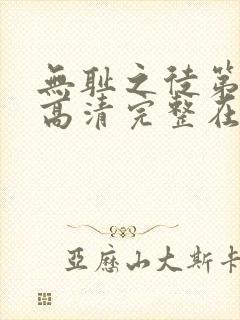 無耻之徒第
高清完整在
亞歷山大斯卡